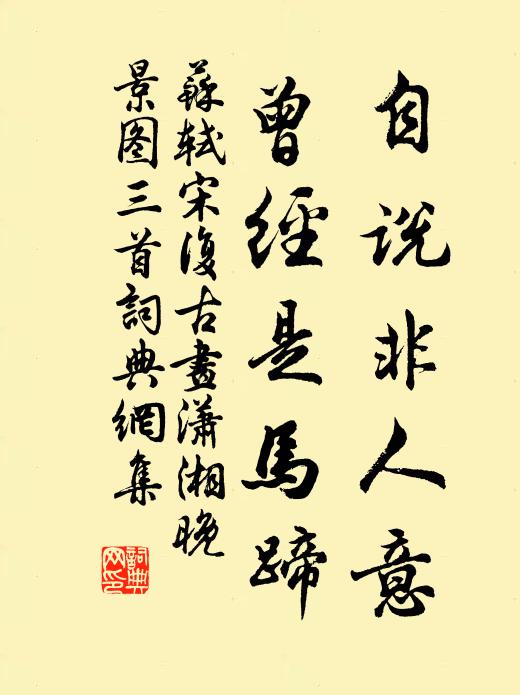 自说非人意
曾經是馬蹄
蘇軾宋復古畫瀟湘晚
景图三首詞典網集
詞典网印